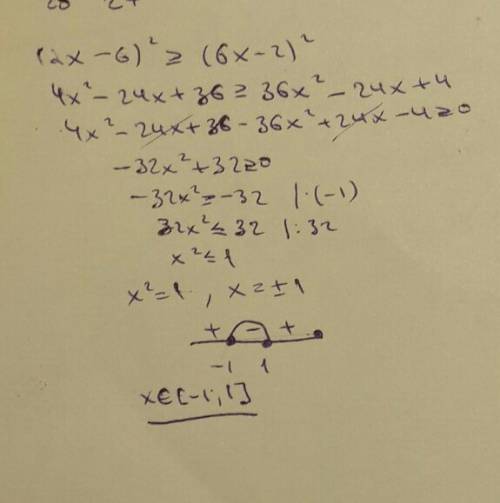 (2x - 6)² ≥ (6x - 2)²
4x² - 24x + 36 ≥ 36x² - 24x + 4
4x² - 24x + 36 - 36x² + 24x - 4 ≥ 0
-32x² + 32 ≥ 0
-32x² ≥ -32 | · (-1)
32x² ≤ 32 | : 32
x² ≤ 1
x² = 1 , x = ±1
+ - +
-1 1
x ∈ [-1; 1]